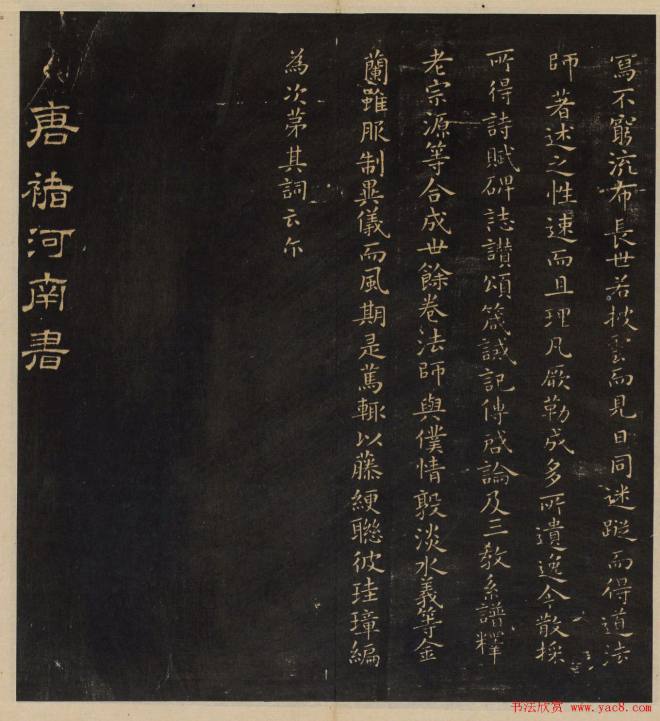 寫不窮流布長世若披雲而見日同迷蹤而得道法
師著述之性速而且理凡厥勒成多所遺逸今散採
所得詩賦碑誌讚頌箴誡記傳啓論及三教系譜釋
老宗源等合成卅餘卷法師與僕情殷淡水義等金
蘭雖服制異儀而風期是篤輒以藤綆聯彼珪璋編
為次第其詞云尔
唐褚河南書
书法欣赏 www.yac8.com